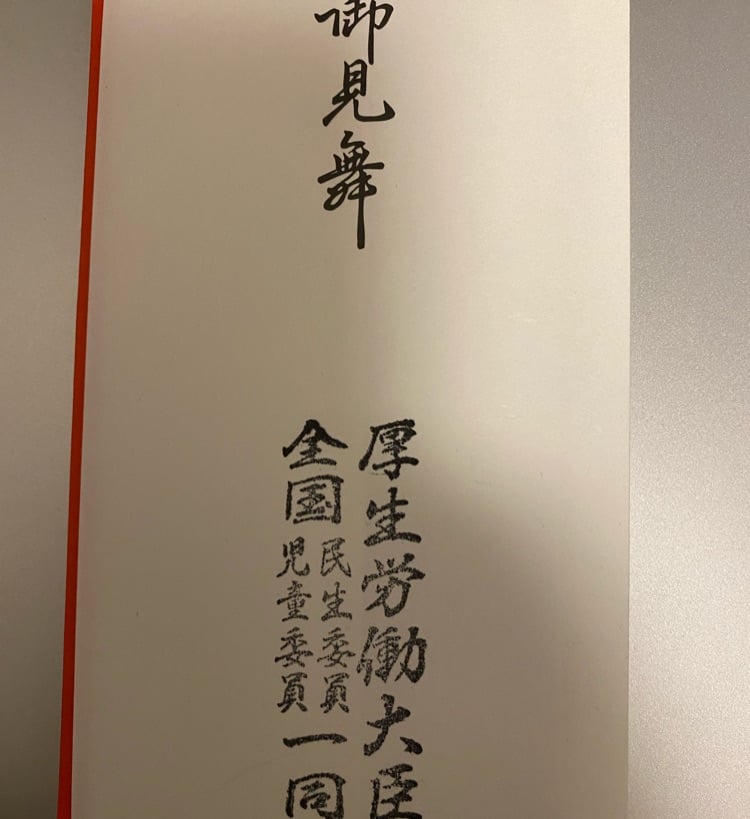 御見舞
厚生労働大臣
全国民生委員児童委員一同